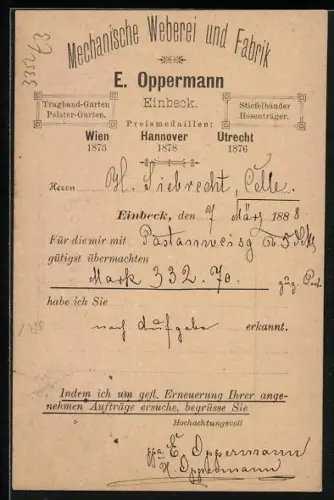 3352/73
Mechanische Weberei und Fabrik
E. Oppermann
Einbeck.
Tragband-Gurten
Polster-Gurten.
Stiefelbänder
Hosenträger.
Preismedaillen:
Wien Hannover Utrecht
1873 1878 1876
Herrn H. Siebrecht, Celle.
Einbeck, den 7 März 1888.
Für die mir mit Postanweisg v. 5 d. M.
gütigst übermachten
Mark 332.70. Port
habe ich Sie
nach Aufgabe erkannt.
Indem ich um gefl. Erneuerung Ihrer ange-
nehmen Aufträge ersuche, begrüsse Sie
Hochachtungsvoll
ppa E. Oppermann
H. Oppermann